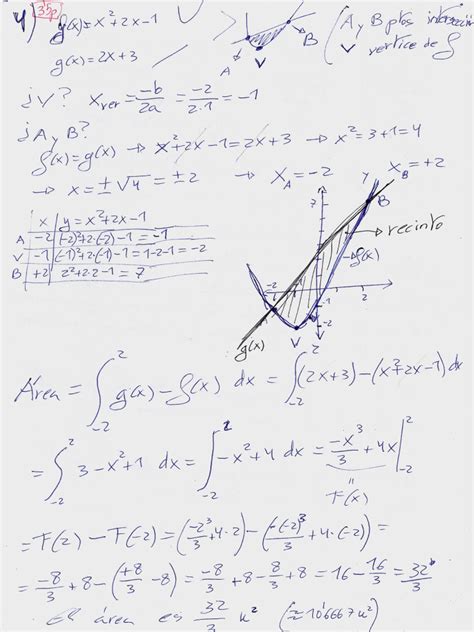 4) 3'5p f(x)=x²+2x-1
g(x)=2x+3
A V B
(A y B ptos intersección
V vértice de f)
¿V? x_ver = -b/2a = -2/2·1 = -1
¿A y B?
f(x)=g(x) → x²+2x-1=2x+3 → x²=3+1=4
→ x=±√4=±2 → x_A=-2 x_B=+2
x | y=x²+2x-1
A -2 | (-2)²+2·(-2)-1=-1
V -1 | (-1)²+2·(-1)-1=1-2-1=-2
B +2 | 2²+2·2-1=7
Y
7
B
→ recinto
→ f(x)
-2 1 2
-1
-2
g(x) V
Área = ∫₋₂² g(x)-f(x) dx = ∫₋₂² (2x+3)-(x²+2x-1) dx
= ∫₋₂² 3-x²+1 dx = ∫₋₂² -x²+4 dx = -x³/3+4x |₋₂²
F(x)
= F(2)-F(-2) = (-2³/3+4·2)-(-(-2)³/3+4·(-2)) =
= -8/3+8-(+8/3-8) = -8/3+8-8/3+8 = 16-16/3 = 32/3
El área es 32/3 u² (≈10'6667u²)